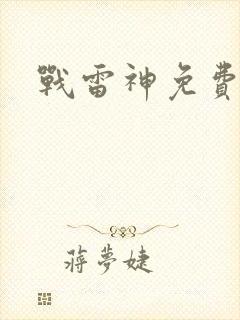 戰雷神免費
蔣夢婕